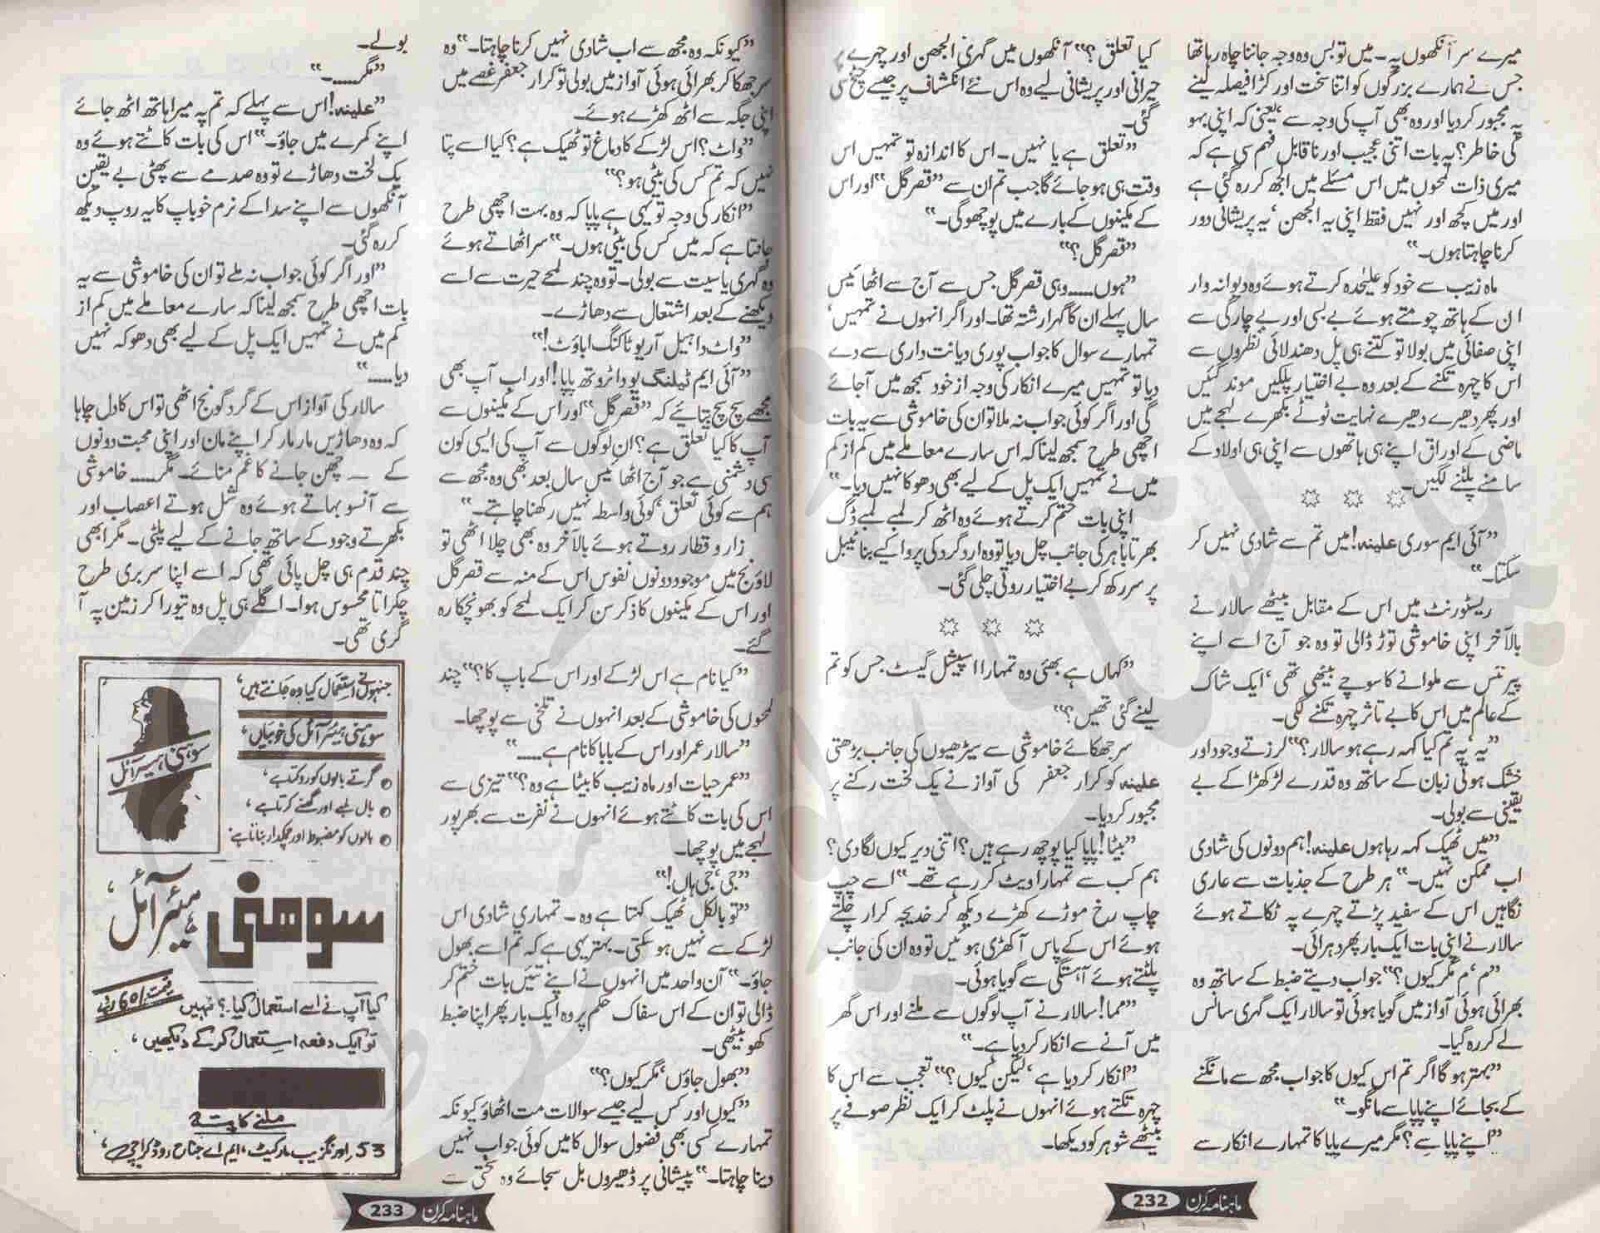 میرے سر آنکھوں پہ۔ میں تو بس وہ وجہ جاننا چاہ رہا تھا
جس نے ہمارے بزرگوں کو اتنا سخت اور کڑا فیصلہ لینے
پہ مجبور کر دیا اور وہ بھی آپ کی وجہ سے‘ یعنی کہ اپنی بہو
کی خاطر؟ یہ بات اتنی عجیب اور ناقابل فہم سی ہے کہ
میری ذات لمحوں میں اس مسئلے میں الجھ کر رہ گئی ہے
اور میں کچھ اور نہیں فقط اپنی یہ الجھن‘ یہ پریشانی دور
کرنا چاہتا ہوں۔“
ماہ زیب سے خود کو علیٰحدہ کرتے ہوئے وہ دیوانہ وار
ان کے ہاتھ چومتے ہوئے بے بسی اور بے چارگی سے
اپنی صفائی میں بولا تو کتنے ہی پل دھندلائی نظروں سے
اس کا چہرہ تکنے کے بعد وہ بے اختیار پلکیں موند گئیں
اور پھر دھیرے دھیرے نہایت ٹوٹے بکھرے لہجے میں
ماضی کے اوراق اپنے ہی ہاتھوں سے اپنی ہی اولاد کے
سامنے پلٹنے لگیں۔
”آئی ایم سوری علینہ! میں تم سے شادی نہیں کر
سکتا۔“
ریسٹورنٹ میں اس کے مقابل بیٹھے سالار نے
بالآخر اپنی خاموشی توڑ ڈالی تو وہ جو آج اسے اپنے
پیرنٹس سے ملوانے کا سوچے بیٹھی تھی‘ ایک شاک
کے عالم میں اس کا بے تاثر چہرہ تکنے لگی۔
”یہ‘ یہ تم کیا کہہ رہے ہو سالار؟“ لرزتے وجود اور
خشک ہوتی زبان کے ساتھ وہ قدرے لڑکھڑا کے بے
یقینی سے بولی۔
”میں ٹھیک کہہ رہا ہوں علینہ! ہم دونوں کی شادی
اب ممکن نہیں۔“ ہر طرح کے جذبات سے عاری
نگاہیں اس کے سفید پڑتے چہرے پہ ٹکاتے ہوئے
سالار نے اپنی بات ایک بار پھر دہرائی۔
”م‘ م مگر کیوں؟“ جواب دیتے ضبط کے ساتھ وہ
بھرائی ہوئی آواز میں گویا ہوئی تو سالار ایک گہری سانس
لے کر رہ گیا۔
”بہتر ہو گا اگر تم اس کیوں کا جواب مجھ سے مانگنے
کے بجائے اپنے پاپا سے مانگو۔“
”اپنے پاپا سے؟ مگر میرے پاپا کا تمہارے انکار سے
کیا تعلق؟“ آنکھوں میں گہری الجھن اور چہرے پر
حیرانی اور پریشانی لیے وہ اس نئے انکشاف پر جیسے چیخ سی
گئی۔
”تعلق ہے یا نہیں۔ اس کا اندازہ تو تمہیں اس
وقت ہی ہو جائے گا جب تم ان سے ”قصر گل“ اور اس
کے مکینوں کے بارے میں پوچھو گی۔“
”قصر گل؟“
”ہوں.....وہی قصر گل جس سے آج سے اٹھائیس
سال پہلے ان کا گہرا رشتہ تھا۔ اور اگر انہوں نے تمہیں‘
تمہارے سوال کا جواب پوری دیانت داری سے دے
دیا تو تمہیں میرے انکار کی وجہ از خود سمجھ میں آجائے
گی اور اگر کوئی جواب نہ ملا تو ان کی خاموشی سے یہ بات
اچھی طرح سمجھ لینا کہ اس سارے معاملے میں کم از کم
میں نے تمہیں ایک پل کے لیے بھی دھوکا نہیں دیا۔“
اپنی بات ختم کرتے ہوئے وہ اٹھ کر لمبے لمبے ڈگ
بھرتا باہر کی جانب چل دیا تو وہ ارد گرد کی پروا کیے بنا ٹیبل
پر سر رکھ کر بے اختیار روتی چلی گئی۔
”کہاں ہے بھئی وہ تمہارا اسپیشل گیسٹ جس کو تم
لینے گئی تھیں؟“
سر جھکائے خاموشی سے سیڑھیوں کی جانب بڑھتی
علینہ کو کرار جعفر کی آواز نے یک لخت رکنے پر
مجبور کر دیا۔
”بیٹا! پاپا کیا پوچھ رہے ہیں؟ اتنی دیر کیوں لگا دی؟
ہم کب سے تمہارا ویٹ کر رہے تھے۔“ اسے چپ
چاپ رخ موڑے کھڑے دیکھ کر خدیجہ کرار چلتے
ہوئے اس کے پاس آ کھڑی ہوئیں تو وہ ان کی جانب
پلٹتے ہوئے آہستگی سے گویا ہوئی۔
”مما! سالار نے آپ لوگوں سے ملنے اور اس گھر
میں آنے سے انکار کر دیا ہے۔“
”انکار کر دیا ہے‘ لیکن کیوں؟“ تعجب سے اس کا
چہرہ تکتے ہوئے انہوں نے پلٹ کر ایک نظر صوفے پر
بیٹھے شوہر کو دیکھا۔
ماہنامہ کرن 232
”کیونکہ وہ مجھ سے اب شادی نہیں کرنا چاہتا۔“ وہ
سر جھکا کر بھرائی ہوئی آواز میں بولی تو کرار جعفر غصے میں
اپنی جگہ سے اٹھ کھڑے ہوئے۔
”واٹ؟ اس لڑکے کا دماغ تو ٹھیک ہے؟ کیا اسے پتا
نہیں کہ تم کس کی بیٹی ہو؟“
”انکار کی وجہ تو یہی ہے پاپا کہ وہ بہت اچھی طرح
جانتا ہے کہ میں کس کی بیٹی ہوں۔“ سر اٹھاتے ہوئے
وہ گہری یاسیت سے بولی۔ تو وہ چند لمحے حیرت سے اسے
دیکھنے کے بعد اشتعال سے دھاڑے۔
”واٹ دا ہیل آر یو ٹاکنگ اباؤٹ!“
”آئی ایم ٹیلنگ یو دا ٹروتھ پاپا! اور اب آپ بھی
مجھے سچ سچ بتایئے کہ ”قصر گل“ اور اس کے مکینوں سے
آپ کا کیا تعلق ہے؟ ان لوگوں سے آپ کی ایسی کون
سی دشمنی ہے جو آج اٹھائیس سال بعد بھی وہ مجھ سے
ہم سے کوئی تعلق‘ کوئی واسطہ نہیں رکھنا چاہتے۔“
زار و قطار روتے ہوئے بالآخر وہ بھی چلا اٹھی تو
لاؤنج میں موجود دونوں نفوس اس کے منہ سے قصر گل
اور اس کے مکینوں کا ذکر سن کر ایک لمحے کو بھونچکا رہ
گئے۔
”کیا نام ہے اس لڑکے اور اس کے باپ کا؟“ چند
لمحوں کی خاموشی کے بعد انہوں نے تلخی سے پوچھا۔
”سالار عمر اور اس کے بابا کا نام ہے.....“
”عمر حیات اور ماہ زیب کا بیٹا ہے وہ؟“ تیزی سے
اس کی بات کاٹتے ہوئے انہوں نے نفرت سے بھرپور
لہجے میں پوچھا۔
”جی‘ جی ہاں!“
”تو بالکل ٹھیک کہتا ہے وہ۔ تمہاری شادی اس
لڑکے سے نہیں ہو سکتی۔ بہتر یہی ہے کہ تم اسے بھول
جاؤ۔“ آن واحد میں انہوں نے اپنے تئیں بات ختم کر
ڈالی تو ان کے اس سفاک حکم پر وہ ایک بار پھر اپنا ضبط
کھو بیٹھی۔
”بھول جاؤں‘ مگر کیوں؟“
”کیوں اور کس لیے جیسے سوالات مت اٹھاؤ کیونکہ
تمہارے کسی بھی فضول سوال کا میں کوئی جواب نہیں
دینا چاہتا۔“ پیشانی پر ڈھیروں بل سجائے وہ سختی سے
بولے۔
”مگر.....“
”علینہ! اس سے پہلے کہ تم پہ میرا ہاتھ اٹھ جائے
اپنے کمرے میں جاؤ۔“ اس کی بات کاٹتے ہوئے وہ
یک لخت دھاڑے تو وہ صدمے سے پھٹی بے یقین
آنکھوں سے اپنے سدا کے نرم خو باپ کا یہ روپ دیکھ
کر رہ گئی۔
”اور اگر کوئی جواب نہ ملے تو ان کی خاموشی سے یہ
بات اچھی طرح سمجھ لینا کہ سارے معاملے میں کم از
کم میں نے تمہیں ایک پل کے لیے بھی دھوکہ نہیں
دیا.....“
سالار کی آواز اس کے گرد گونج اٹھی تو اس کا دل چاہا
کہ وہ دھاڑیں مار مار کر اپنے مان اور اپنی محبت دونوں
کے — چھن جانے کا غم منائے۔ مگر.....خاموشی
سے آنسو بہاتے ہوئے وہ شل ہوتے اعصاب اور
بکھرتے وجود کے ساتھ جانے کے لیے پلٹی۔ مگر ابھی
چند قدم ہی چل پائی تھی کہ اسے اپنا سر بری طرح
چکراتا محسوس ہوا۔ اگلے ہی پل وہ تیورا کر زمین پہ آ
گری تھی۔
جنہوں نے استعمال کیا وہ جانتے ہیں،
سوہنی ہیئر آئل کی خوبیاں،
سوہنی ہیئر آئل
● گرتے بالوں کو روکتا ہے،
● بال لمبے اور گھنے کرتا ہے،
● بالوں کو مضبوط اور چمکدار بناتا ہے،
سوہنی ہیئر آئل،
قیمت 60/ روپے
کیا آپ نے اسے استعمال کیا۔؟ نہیں
تو ایک دفعہ استعمال کر کے دیکھیں،
ملنے کا پتہ
53، اورنگزیب مارکیٹ، ایم اے جناح روڈ کراچی،
ماہنامہ کرن 233